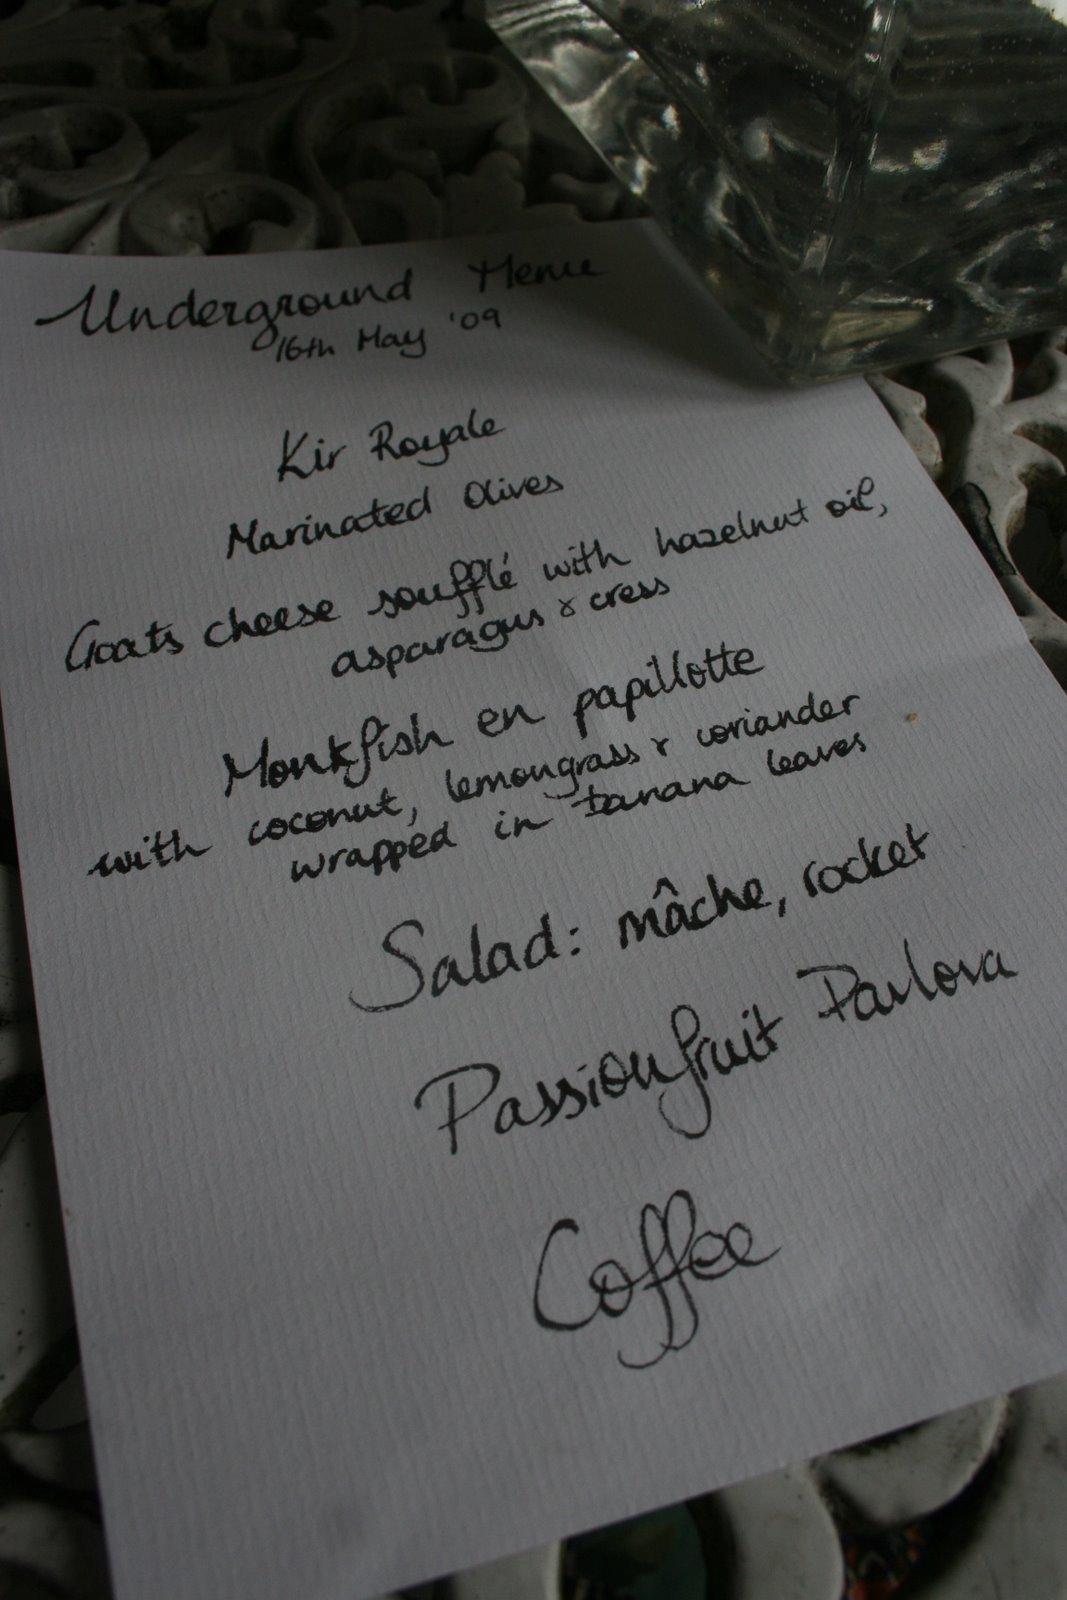 Underground Menu
16th May '09
Kir Royale
Marinated Olives
Goats cheese soufflé with hazelnut oil,
asparagus & cress
Monkfish en papillotte
with coconut, lemongrass & coriander
wrapped in banana leaves
Salad: mâche, rocket
Passionfruit Pavlova
Coffee